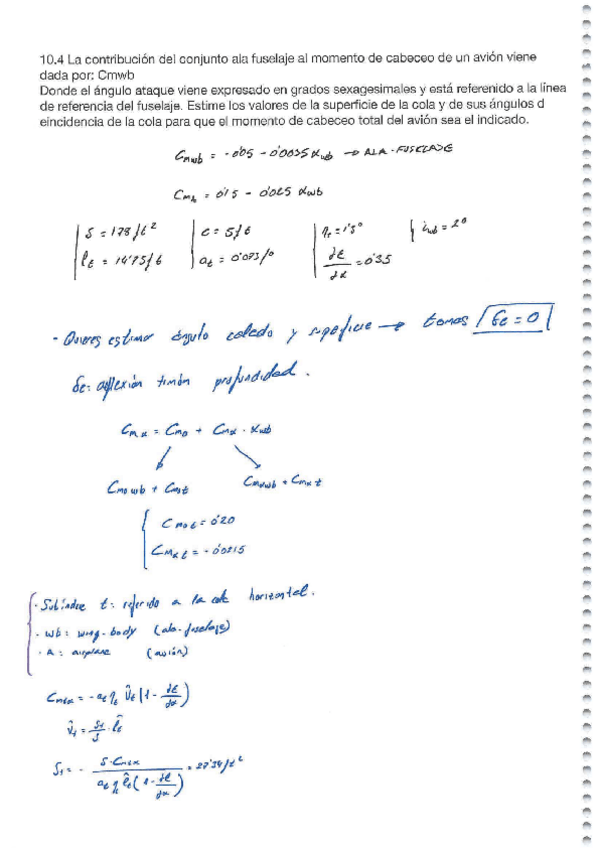 10.4 La contribución del conjunto ala fuselaje al momento de cabeceo de un avión viene
dada por: Cmwb
Donde el ángulo ataque viene expresado en grados sexagesimales y está referenido a la línea
de referencia del fuselaje. Estime los valores de la superficie de la cola y de sus ángulos d
eincidencia de la cola para que el momento de cabeceo total del avión sea el indicado.
Cmwb = -0'05 - 0'0035 αwb → ALA-FUSELAJE
= 0'15 - 0'025 αwb
S = 178 ft² c = 5 ft = 2°
lt = 14'75 ft at = 0'073/° ∂ε/∂α = 0'35
- Quieres estimar ángulo calado y superficie → tomas δe = 0
δe: timón profundidad.
Cmα = Cm0 + Cmα · αwb
Cm0wb + Cm0t Cmαwb + Cmαt
Cm0t = 0'20
Cmαt = -0'0215
· Subíndice t: referido a la horizontal.
· wb: wing-body (ala-fuselaje)
· A: airplane (avión)
Cmtα = -at ηt V̂t (1 - ∂ε/∂α)
V̂t = St/S · l̂t
St = - S·Cmtα / at η l̂t (1 - ∂ε/∂α)